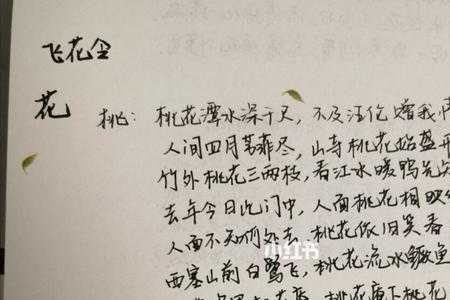 飞花令
花
桃：桃花潭水深千尺，不及汪伦赠我情
人间四月芳菲尽，山寺桃花始盛开
竹外桃花三两枝，春江水暖鸭先知
去年今日此门中，人面桃花相映
人面不知何处去，桃花依旧笑春
西塞山前白鹭飞，桃花流水鳜鱼
桃花庵下桃花
小红书